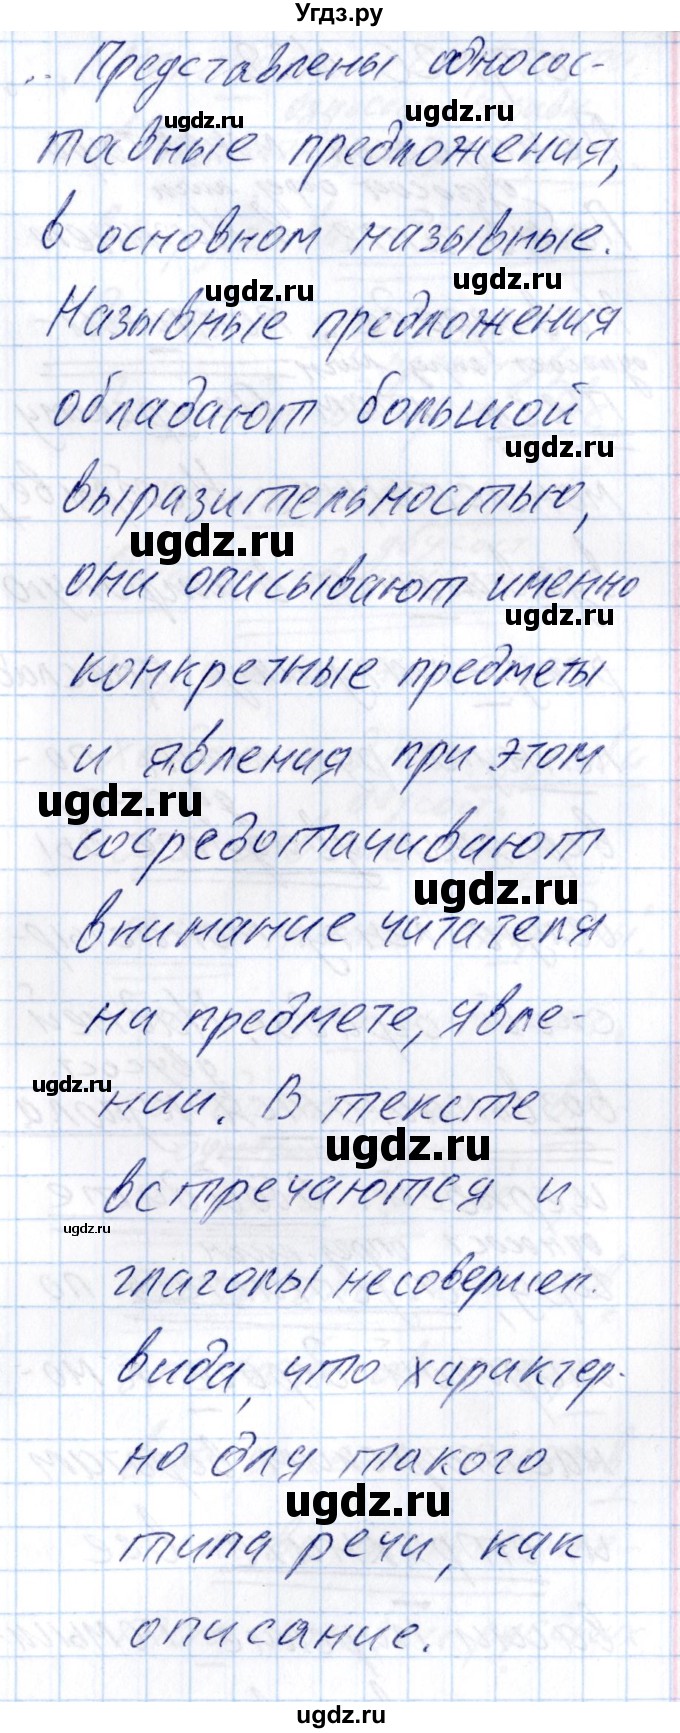 Угдз.ру
.. Представлены односос-
ugdz.ru
ugdz.ru
тавные предложения,
в основном назывные.
ugdz.ru
ugdz.ru
Назывные предложения
обладают большой
ugdz.ru
выразительностью,
ugdz.ru
они описывают именно
ugdz.ru
конкретные предметы
и явления при этом
ugdz.ru
сосредотачивают
ugdz.ru
внимание читателя
на предмете, явле-
ugdz.ru
нии. В тексте
ugdz.ru
встречаются и
ugdz.ru
глаголы несовершен.
вида, что характер-
но для такого
ugdz.ru
типа речи, как
описание.
ugdz.ru